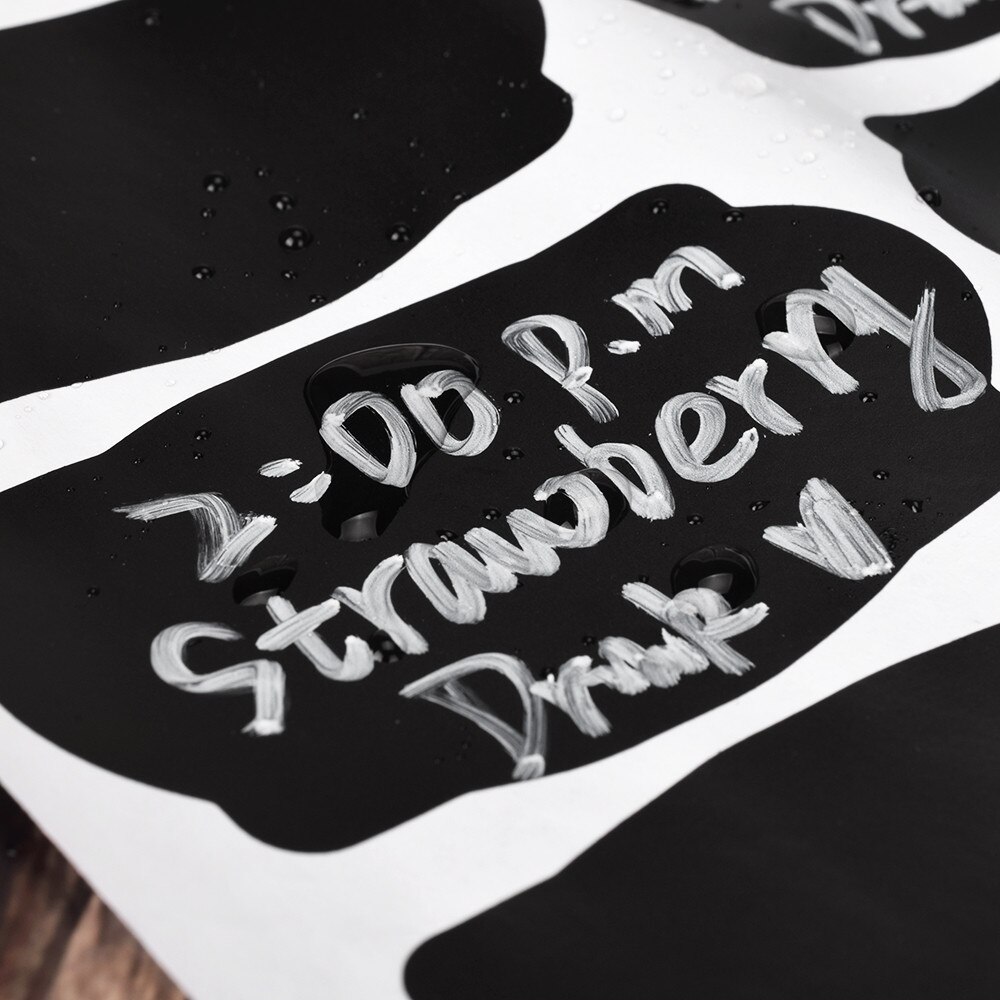 2:00 p.m
Strawberry
Drink